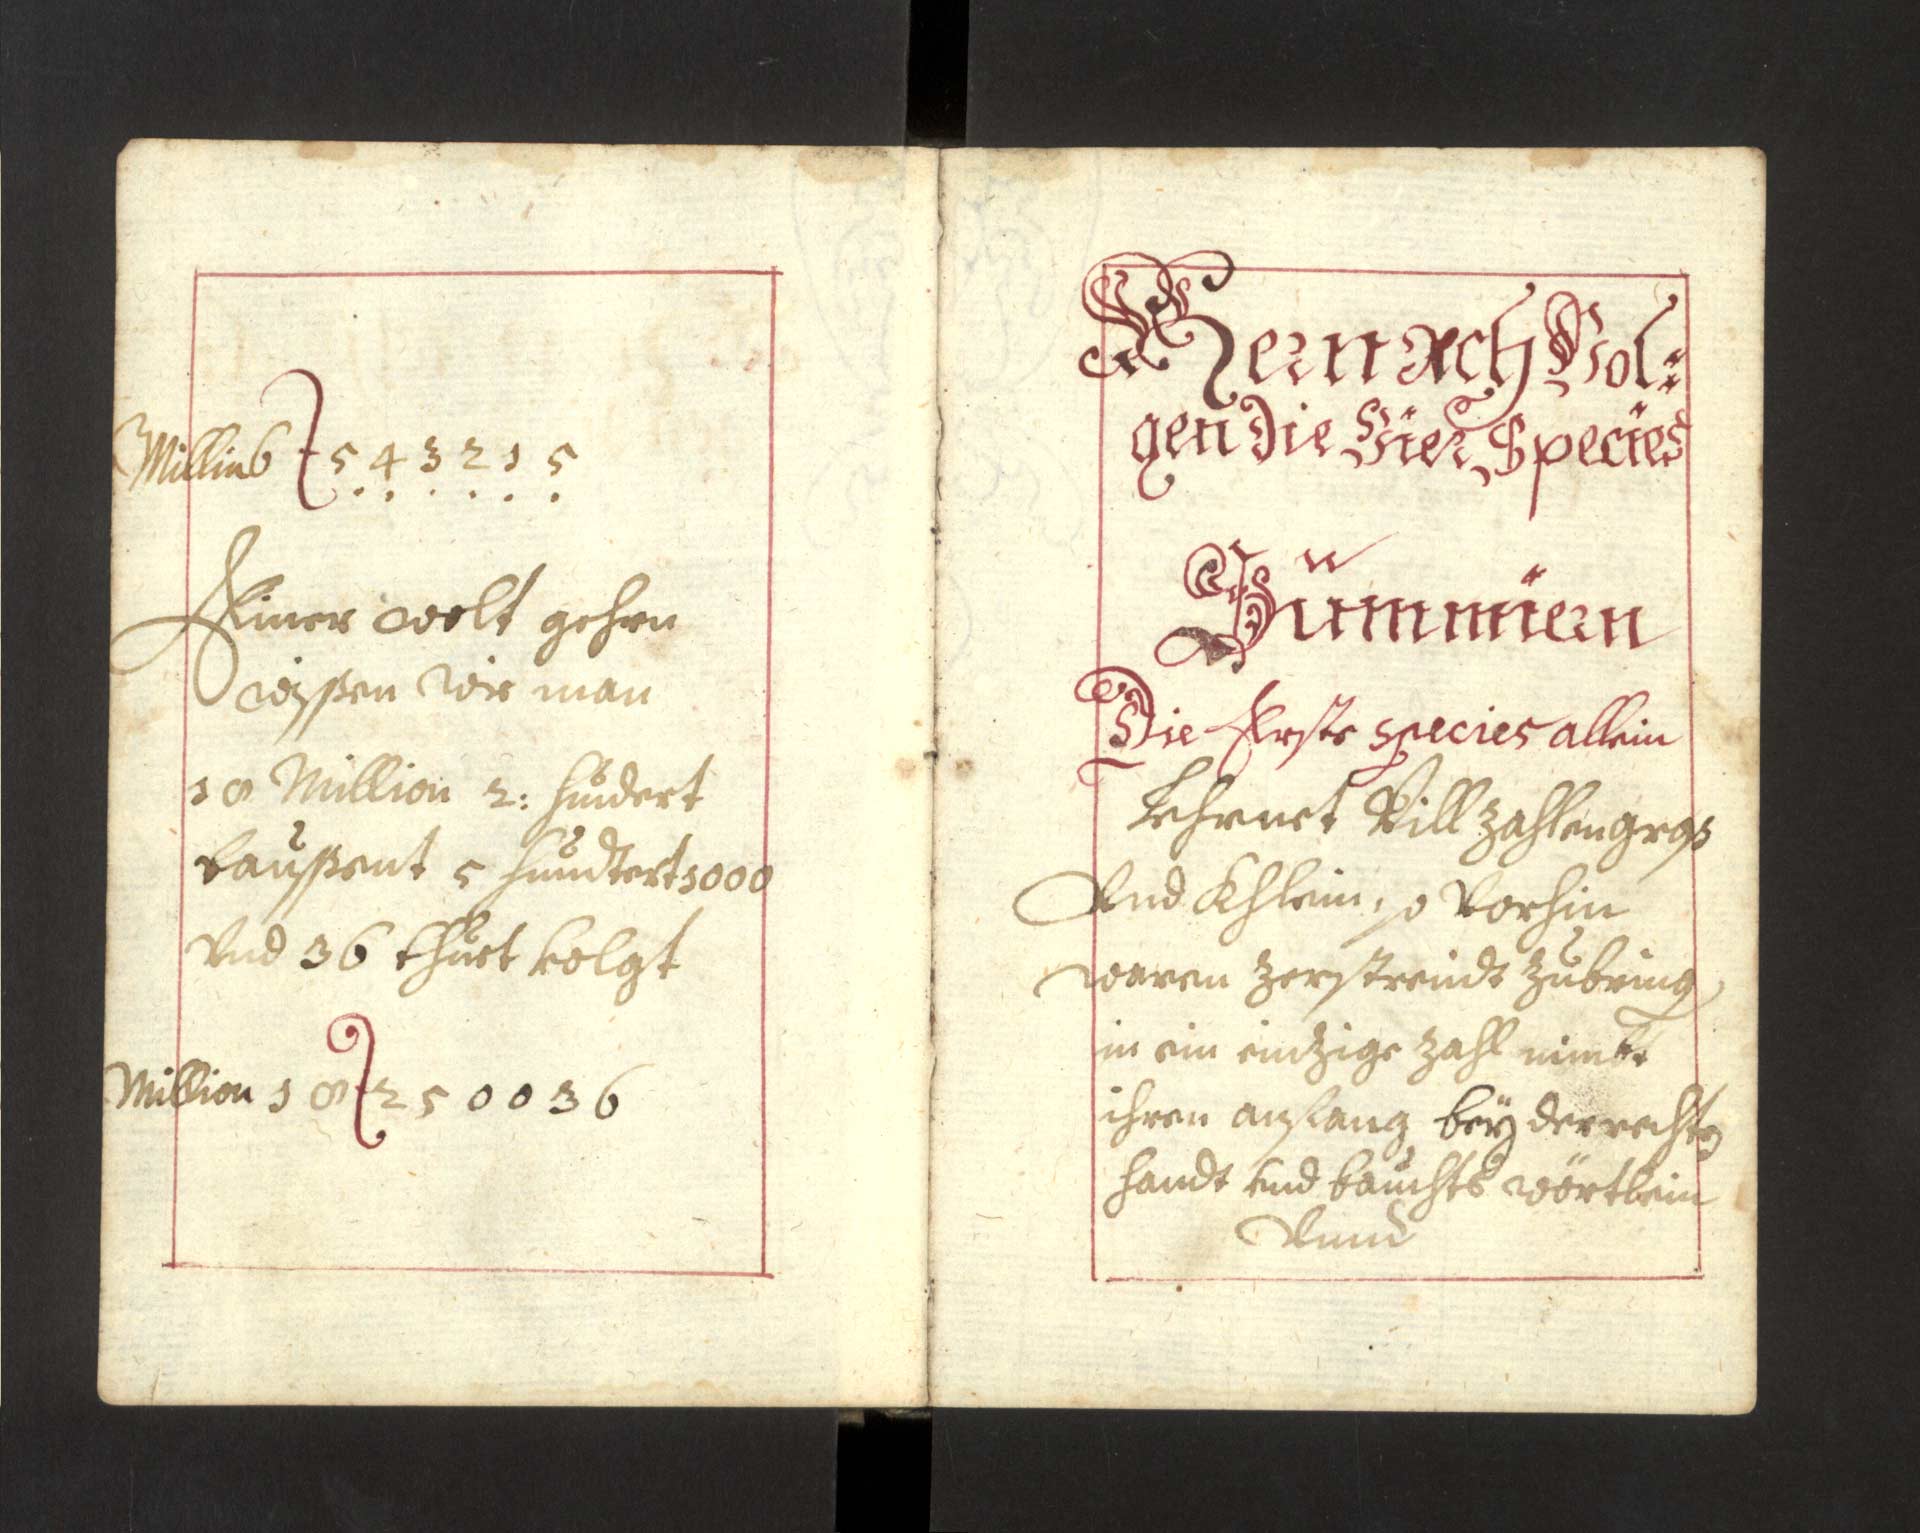 Million 6 5 4 3 2 1 5
Einer wolt gehrn
wissen wie man
18 Million 2: hundert
taussent 5 hundtert 1000
Vnd 36 thuet folgt
Million 18 2 5 0 0 3 6
Hernach Vol:
gen die Vier Species
Summiern
Die Erste species allein
Lehrnet Vill zahlen gross
Vnd Khlein, so Vorhin
waren zerstreudt zubring
in ein eintzige zahl nimbt
ihren anfang beÿ der rechtn
handt vnd bauchts wörtlein
Vnnd